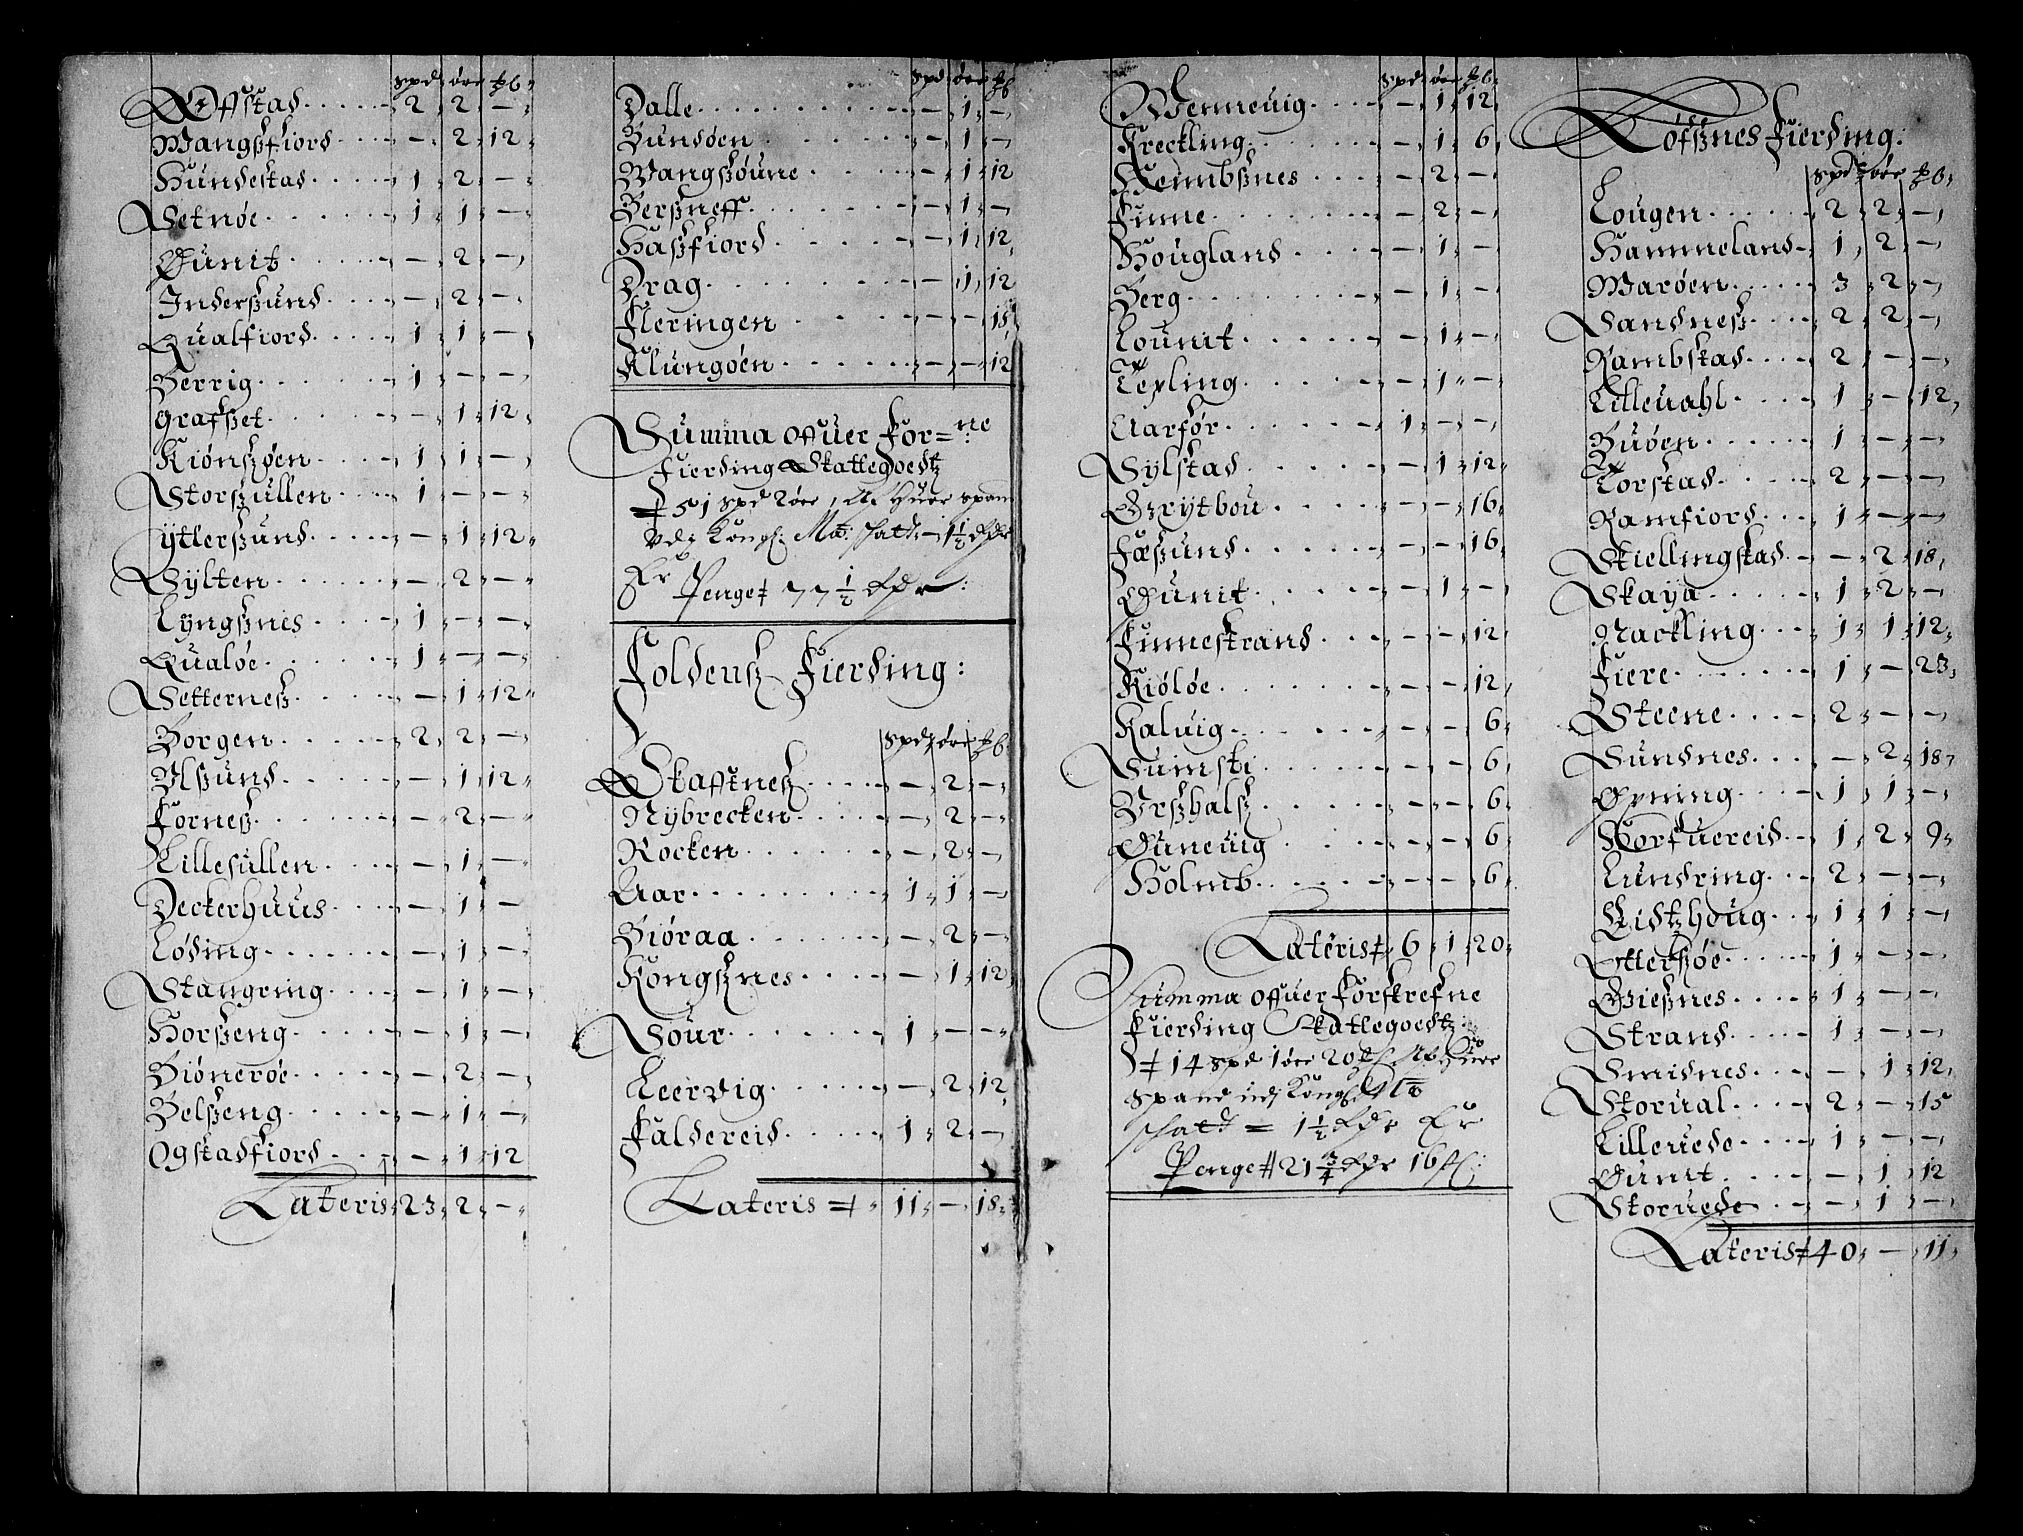 spd. öre ßb.
Offstad . . . . . 2. 2. —.
Wangsfiord . . . —. 2. 12.
Hundestad . . . . 1. 2. —.
Setnøe . . . . . 1. 1. —.
Gunit . . . . . —. 2. —.
Indersund . . . . —. 2. —.
Qualfiord . . . . 1. 1. —.
Berrig . . . . . 1. —. —.
Grafset . . . . . —. 1. 12.
Kiönsøen . . . . 1. 1. —.
Storsullen . . . . 1. —. —.
Ÿttersund . . . . —. 1. 12.
Sylten . . . . . —. 2. —.
Lyngsnes . . . . 1. —. —.
Qualøe . . . . . 1. —. —.
Setterness . . . . —. 1. 12.
Borgen . . . . . 2. 2. —.
Ulsund . . . . . —. 1. 12.
Forness . . . . . —. 2. —.
Lillesullen . . . . —. 1. —.
Deckerhuus . . . —. 1. —
Löding . . . . . —. 1. —.
Stangring . . . . —. 1. —.
Horseng . . . . —. 1. —.
Biönerøe . . . . —. 2. —.
Belseng . . . . . —. 1. —.
Ogstadfiord . . . —. 1. 12
Lateris. 23. 2. —.
spd öre ßb
Dalle . . . . . . —. 1. —.
Bundøen . . . . —. 1. —
Wangsøune . . . —. 1. 12
Bersneff . . . . . —. 1. —.
Hasfiord . . . . —. 1. 12.
Drag . . . . . . —. 1. 12
Fleringen . . . . —. —. 15
Klungøen . . . . —. —. 12
Summa offuer For=ne
Fierding Skattegoedtz
51 spd 2öre, Af huer span
vdj Kongl: Ma: skatt — 1½ Rdr
Er
Penge 77½ Rdr:
Foldens Fierding:
spd. öre ßb.
Skaffnes . . . . —. 2. —.
Nÿbrecken . . . —. 2. —.
Rocken . . . . . —. 2. —.
Aar . . . . . . 1. 1. —
Biöraa . . . . . —. 2. —.
Kongsnes . . . . —. 1. 12.
Sour . . . . . . 1. —. —.
Leervig . . . . . —. 2. 12.
Faldereid . . . . 1. 2. —.
Lateris 11. —. 18.
spd. öre ßb.
Wenneuig . . . . —. 1. 12.
Kreckling . . . . —. 1. 6.
Rembsnes . . . . —. 2. —.
Finne . . . . . —. 2. —.
Hougland . . . . —. 1. —.
Berg . . . . . . —. 1. —.
Lounit . . . . . —. 1. —.
Tepling . . . . . —. 1. —.
Aarför . . . . . 1. —. —.
Sylstad . . . . . —. 1. 12.
Grÿtbou . . . . —. —. 16.
Føsund . . . . . —. —. 16.
Gunit . . . . . —. 1. —.
Finnestrand . . . —. —. 12.
Kiöløe . . . . . —. —. 12.
Kaluig . . . . . —. —. 6.
Sumsti . . . . . —. —. 6.
Urshals . . . . . —. —. 6.
Guneuig . . . . —. —. 6.
Holmb . . . . . —. —. 6.
Lateris 6. 1. 20.
Summa offuer Forskrefne
Fierding Skattegoedtz:
14 spd 1öre 20 Af huer
spand udj Kongl Ma
skatt = 1½ Rdr Er
Penge 21¾ Rdr 16 ß:
Löfsnes Fierding:
spd. öre ßb.
Lougen . . . . . 2. 2. —.
Hammeland . . . 1. 2. —.
Marøen . . . . . 3. 2. —.
Sandness . . . . 2. 2. —.
Rambstad . . . . 2. —. —.
Litleuahl . . . . 1. —. 12.
Buøen . . . . . 1. —. —.
Torstad . . . . . 2. —. —.
Ramfiord . . . . 1. —. —.
Skiellingstad . . . —. 2. 18.
Skaya . . . . . 1. 2. —.
Nackling . . . . 1. 1. 12.
Fiere . . . . . . 1. —. 23.
Steene . . . . . 2. —. —.
Sundnes . . . . —. 2. 18.
Opning . . . . . 1. 1. —.
Korsuereid . . . 1. 2. 9.
Lundring . . . . 2. —. —.
Lidtzhoug . . . . 1. 1. —.
Ottersøe . . . . . 1. —. —.
Giesnes . . . . . 1. —. —.
Strand . . . . . 1. —. —.
Smidnes . . . . —. 1. 12.
Storual . . . . . 2. —. 15
Lilleuede . . . . 1. —. —.
Gunit . . . . . —. 1. 12
Storuede . . . . —. 1. —.
Lateris 40. —. 11.